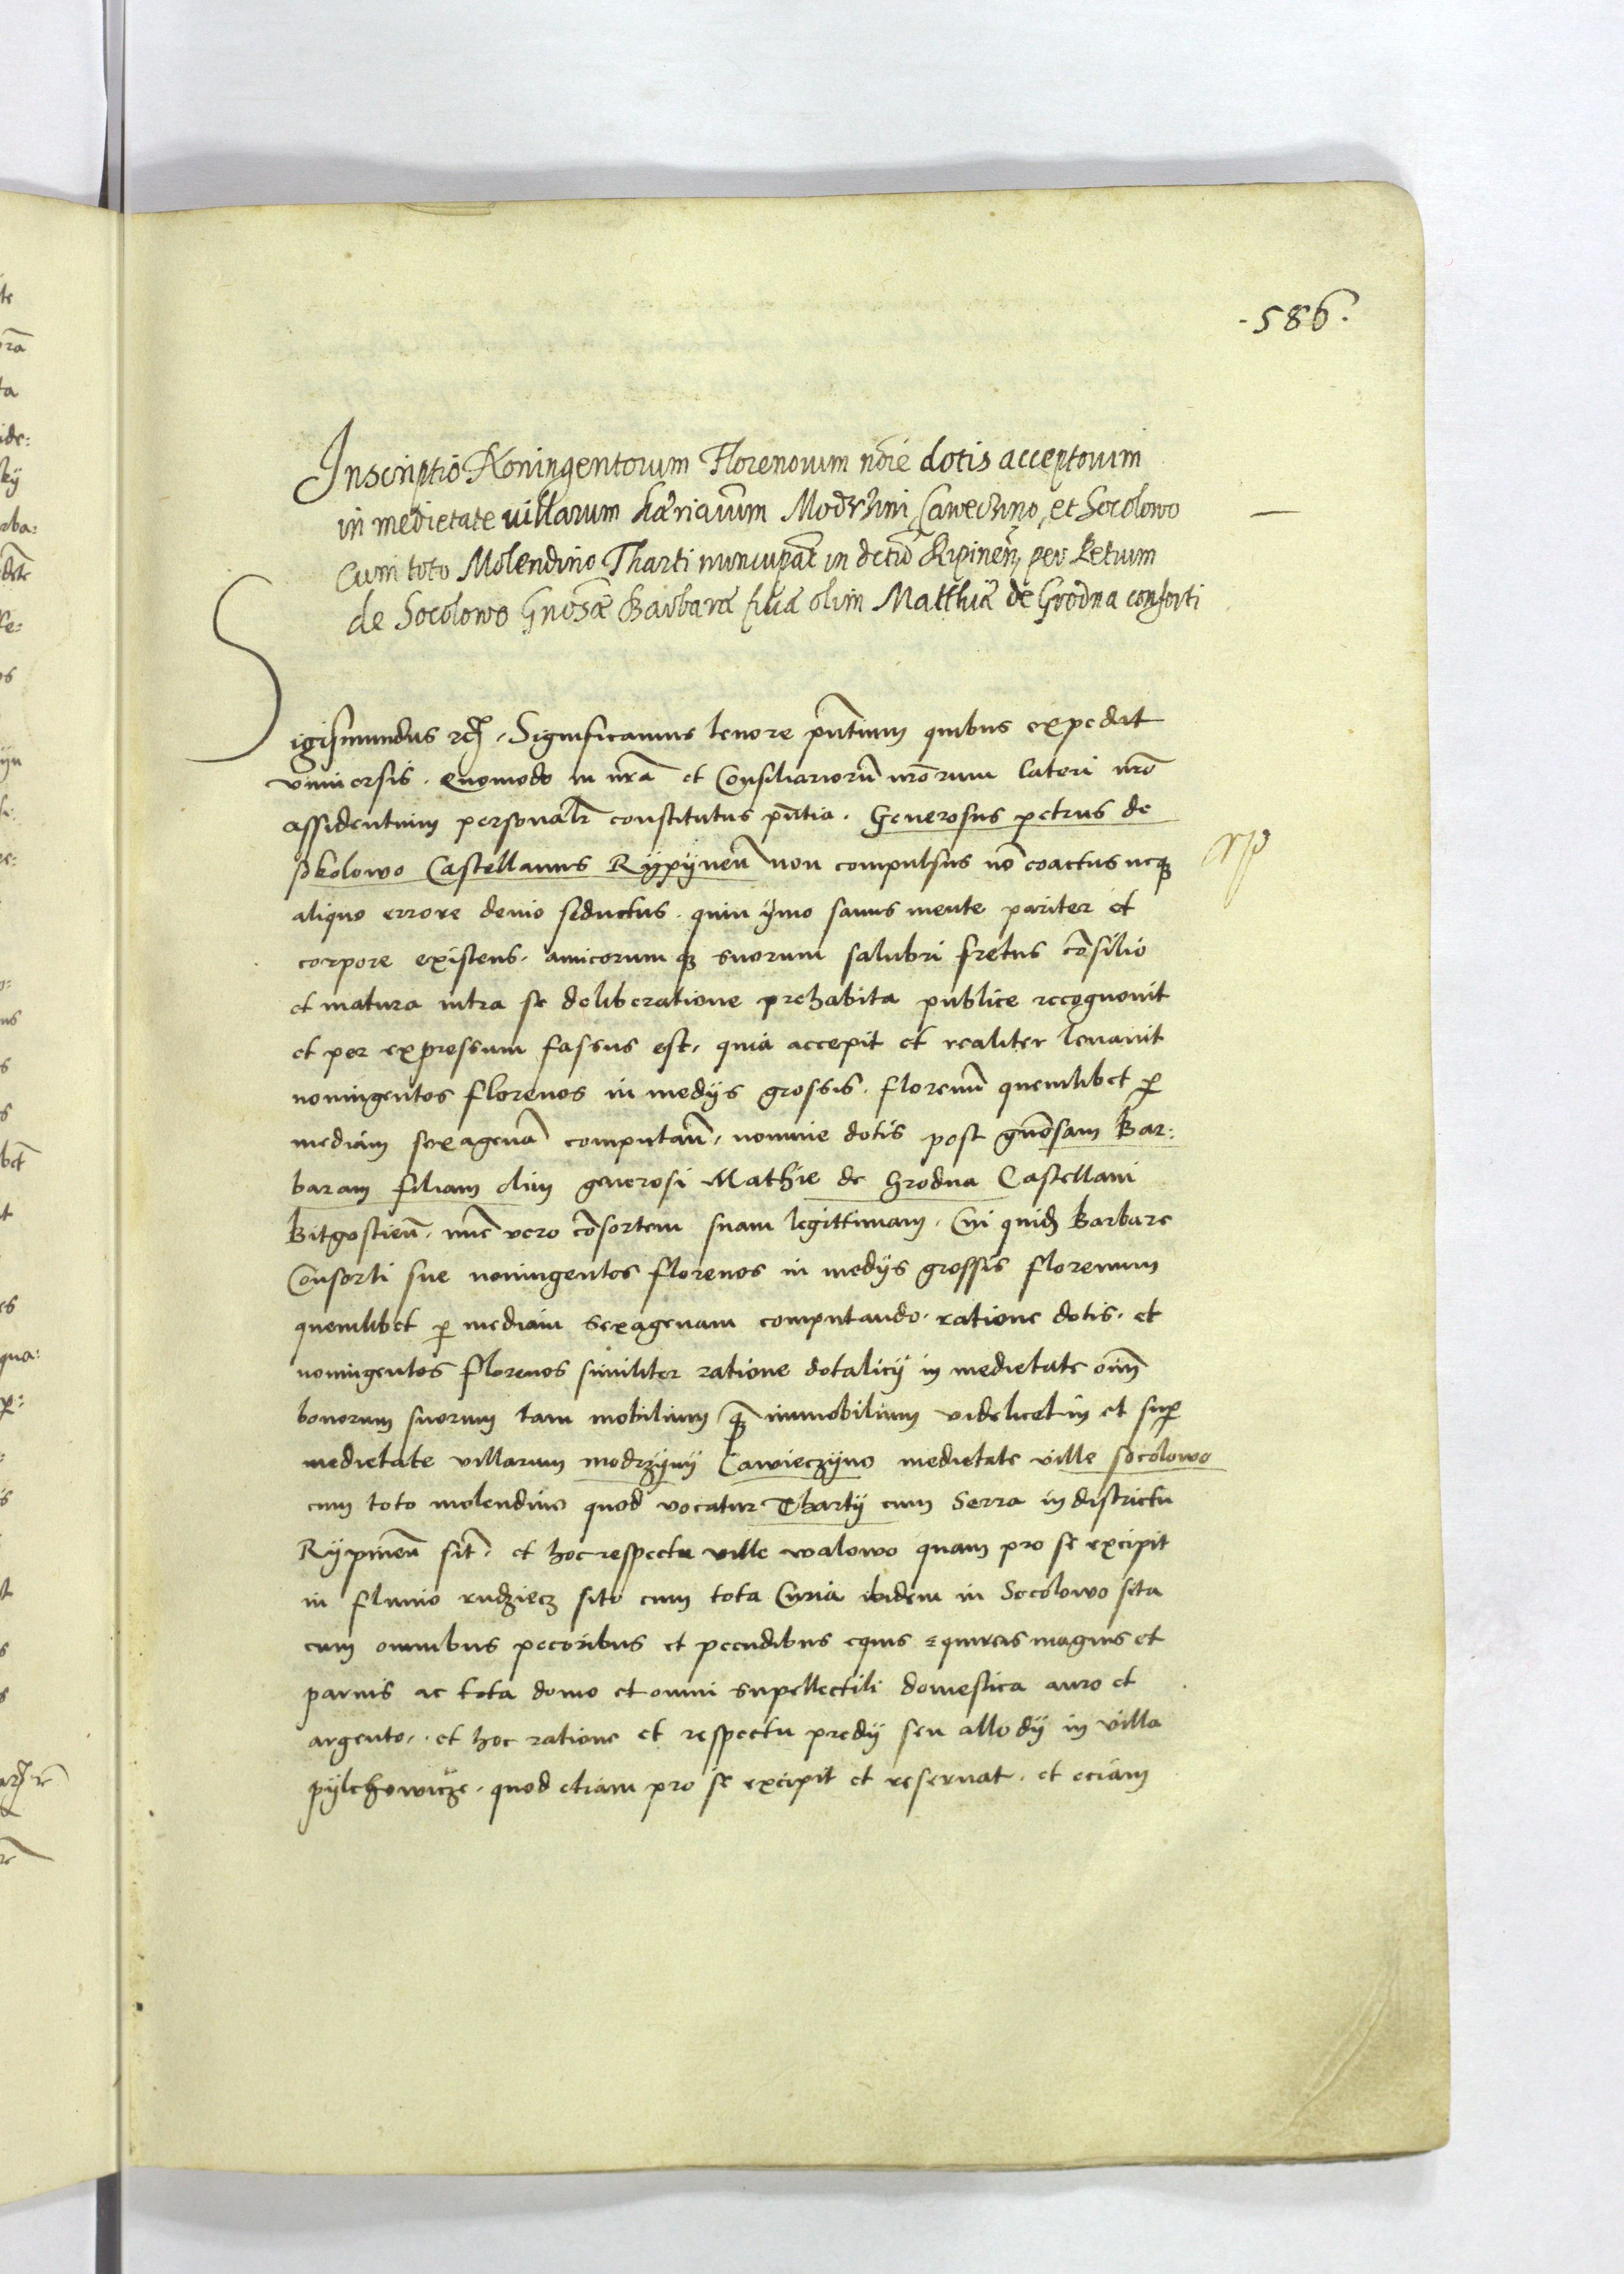 .586.
Inscriptio Noningentorum Florenorum nõie dotis acceptorum
in medietate villarum hæricarum Modrzini, Caweczino, et Socolowo
Cum toto Molendino Tharti nuncupat in dctũ Ripineñ per Petrum
de Socolowo Gnosæ Barbaræ filiæ olim Matthiæ de Grodna consorti
Sigismundus rcħ. Significamus tenore pñtium quibus expedit
universis. Quomodo in nrã et Consiliariorũ nrõrum lateri nrõ
assidentium personalr constitutus pñtia. Generosus petrus de
sokolowo Castellanus Rypyneñ non compulsus nõ coactus neqз
aliquo errore devio seductus. quin ymo sanus mente pariter et
corpore existens. amicorum qз suorum salubri fretus cõsilio
et matura intra se deliberatione prehabita publice recognovit
et per expressum fassus est. quia accepit et realiter levavit
noningentos florenos in medÿs grossis. florenũ quemlibet ꝑ
mediam sexagenã computañ. nomine dotis post gnõsam Bar:
baram filiam olim generosi Mathie de Grodna Castellani
Bitgostieñ. nũc vero cõsortem suam legittimam. Cui quidз Barbare
Consorti sue noningentos florenos in medÿs grossis florenum
quemlibet ꝑ mediam sexagenam computando. ratione dotis. et
noningentos florenos similiter ratione dotalicÿ in medietate oĩm
bonorum suorum tam mobilium qз̃ immobilium videlicet in et suꝑ
medietate villarum modrzÿny Cawieczÿno medietate ville socolowo
cum toto molendino quod vocatur Thartÿ cum Serra in districtu
Rÿpineñ sit̃. et hoc respectu ville walowo quam pro se excipit
in fluvio rudziecz sito cum tota Curia ibidem in Socolowo sita
cum omnibus pecoribus et pecudibus equis equireis magnis et
parvis ac tota domo et omni supellectili domestica auro et
argento. et hoc ratione et respectu predÿ seu allodÿ in villa
pÿlchowicze. quod etiam pro se excipit et reservat. et eciam